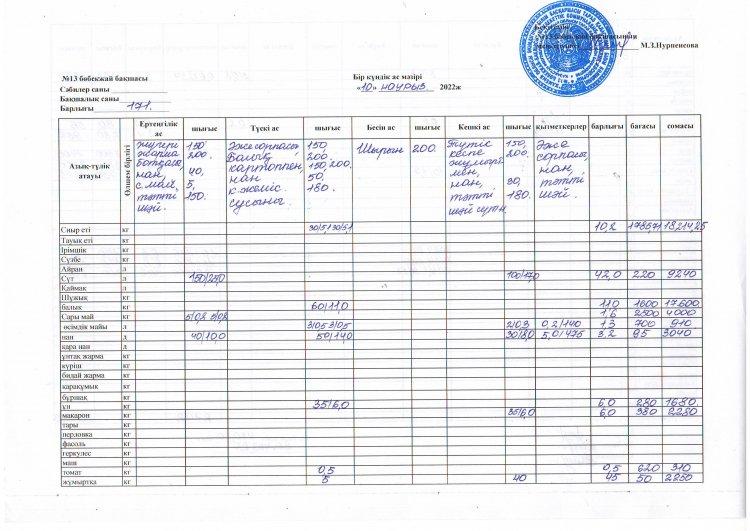 М.З.Нурпеисова
№13 бөбекжай бақшасы
Сәбилер саны
Бақшалық саны
Барлығы 171.
Бір күндік ас мәзірі
«10» наурыз 2022ж
Азық-түлік атауы | Өлшем бірлігі | Ертеңгілік ас | шығыс | Түскі ас | шығыс | Бесін ас | шығыс | Кешкі ас | шығыс | қызметкерлер | барлығы | бағасы | сомасы
жүгері жарма ботқасы, нан, с.май, тәтті шәй. | 150 200. 40, 5, 150. | Әже сорпасы Балық картоппен, нан к.жеміс. сусыны. | 150, 200. 150,200. 50, 180. | Шырын | 200. | нан, тәтті | 150, 200, 30, 180. | Әже сорпасы, нан, тәтті шәй.
Сиыр еті кг 10,2 18214,25
Тауық еті кг
Ірімшік кг
Сүзбе кг
Айран л
Сүт л 150/25,0 100/17,0 42,0 220 9240
Қаймак кг
Шұжық кг
балық кг 60/11,0 11,0 1600 17600
Сары май кг 1,6 2500 4000
өсімдік майы л 1,3 700 910
нан д 40/10,0 5,0/475 95 3040
қара нан д
ұнтақ жарма кг
күріш кг
бидай жарма кг
қарақұмық кг
бұршақ кг
ұн кг 35/6,0 6,0 280 1680.
макарон кг 35/6,0 6,0 380 2280
тары кг
перловка кг
фасоль кг
геркулес кг
маш кг
томат кг 0,5 0,5 620 310
жұмыртқа кг 5 40 45 50 2250